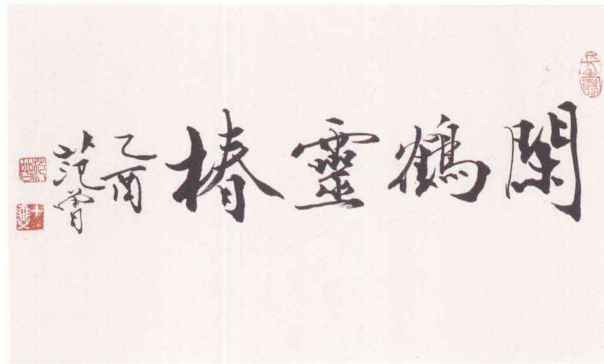 閑鶴靈椿
乙酉
范曾